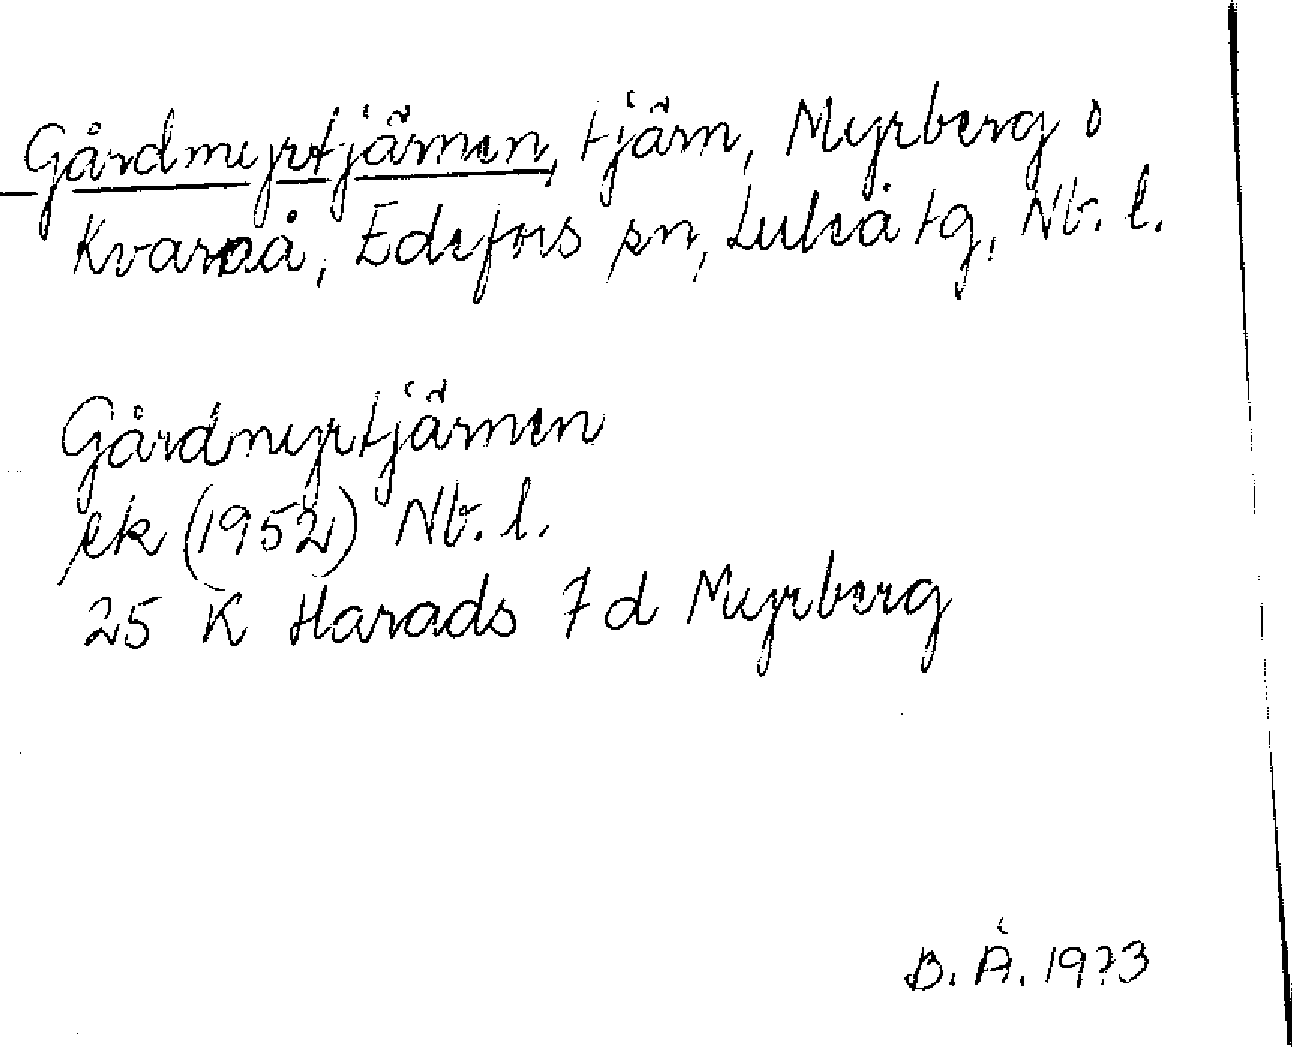 Gårdmyrtjärnen, tjärn, Myrberg o
Kvarnå, Edefors sn, Luleå tg, Nb. l.
Gårdmyrtjärnen
ek (1952) Nb. l.
25 K Harads 7 d Myrberg
B. Å. 1973